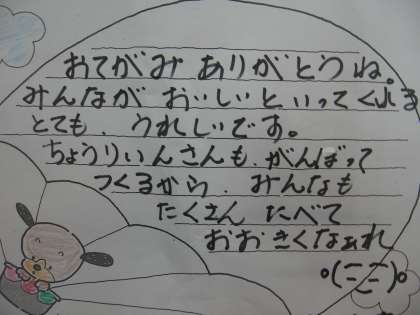 おてがみ ありがとうね。
みんなが おいしいと いってくれる
とても、うれしいです。
ちょうりいんさんも、がんばって
つくるから、みんなも
たくさん たべて
おおきくなぁれ